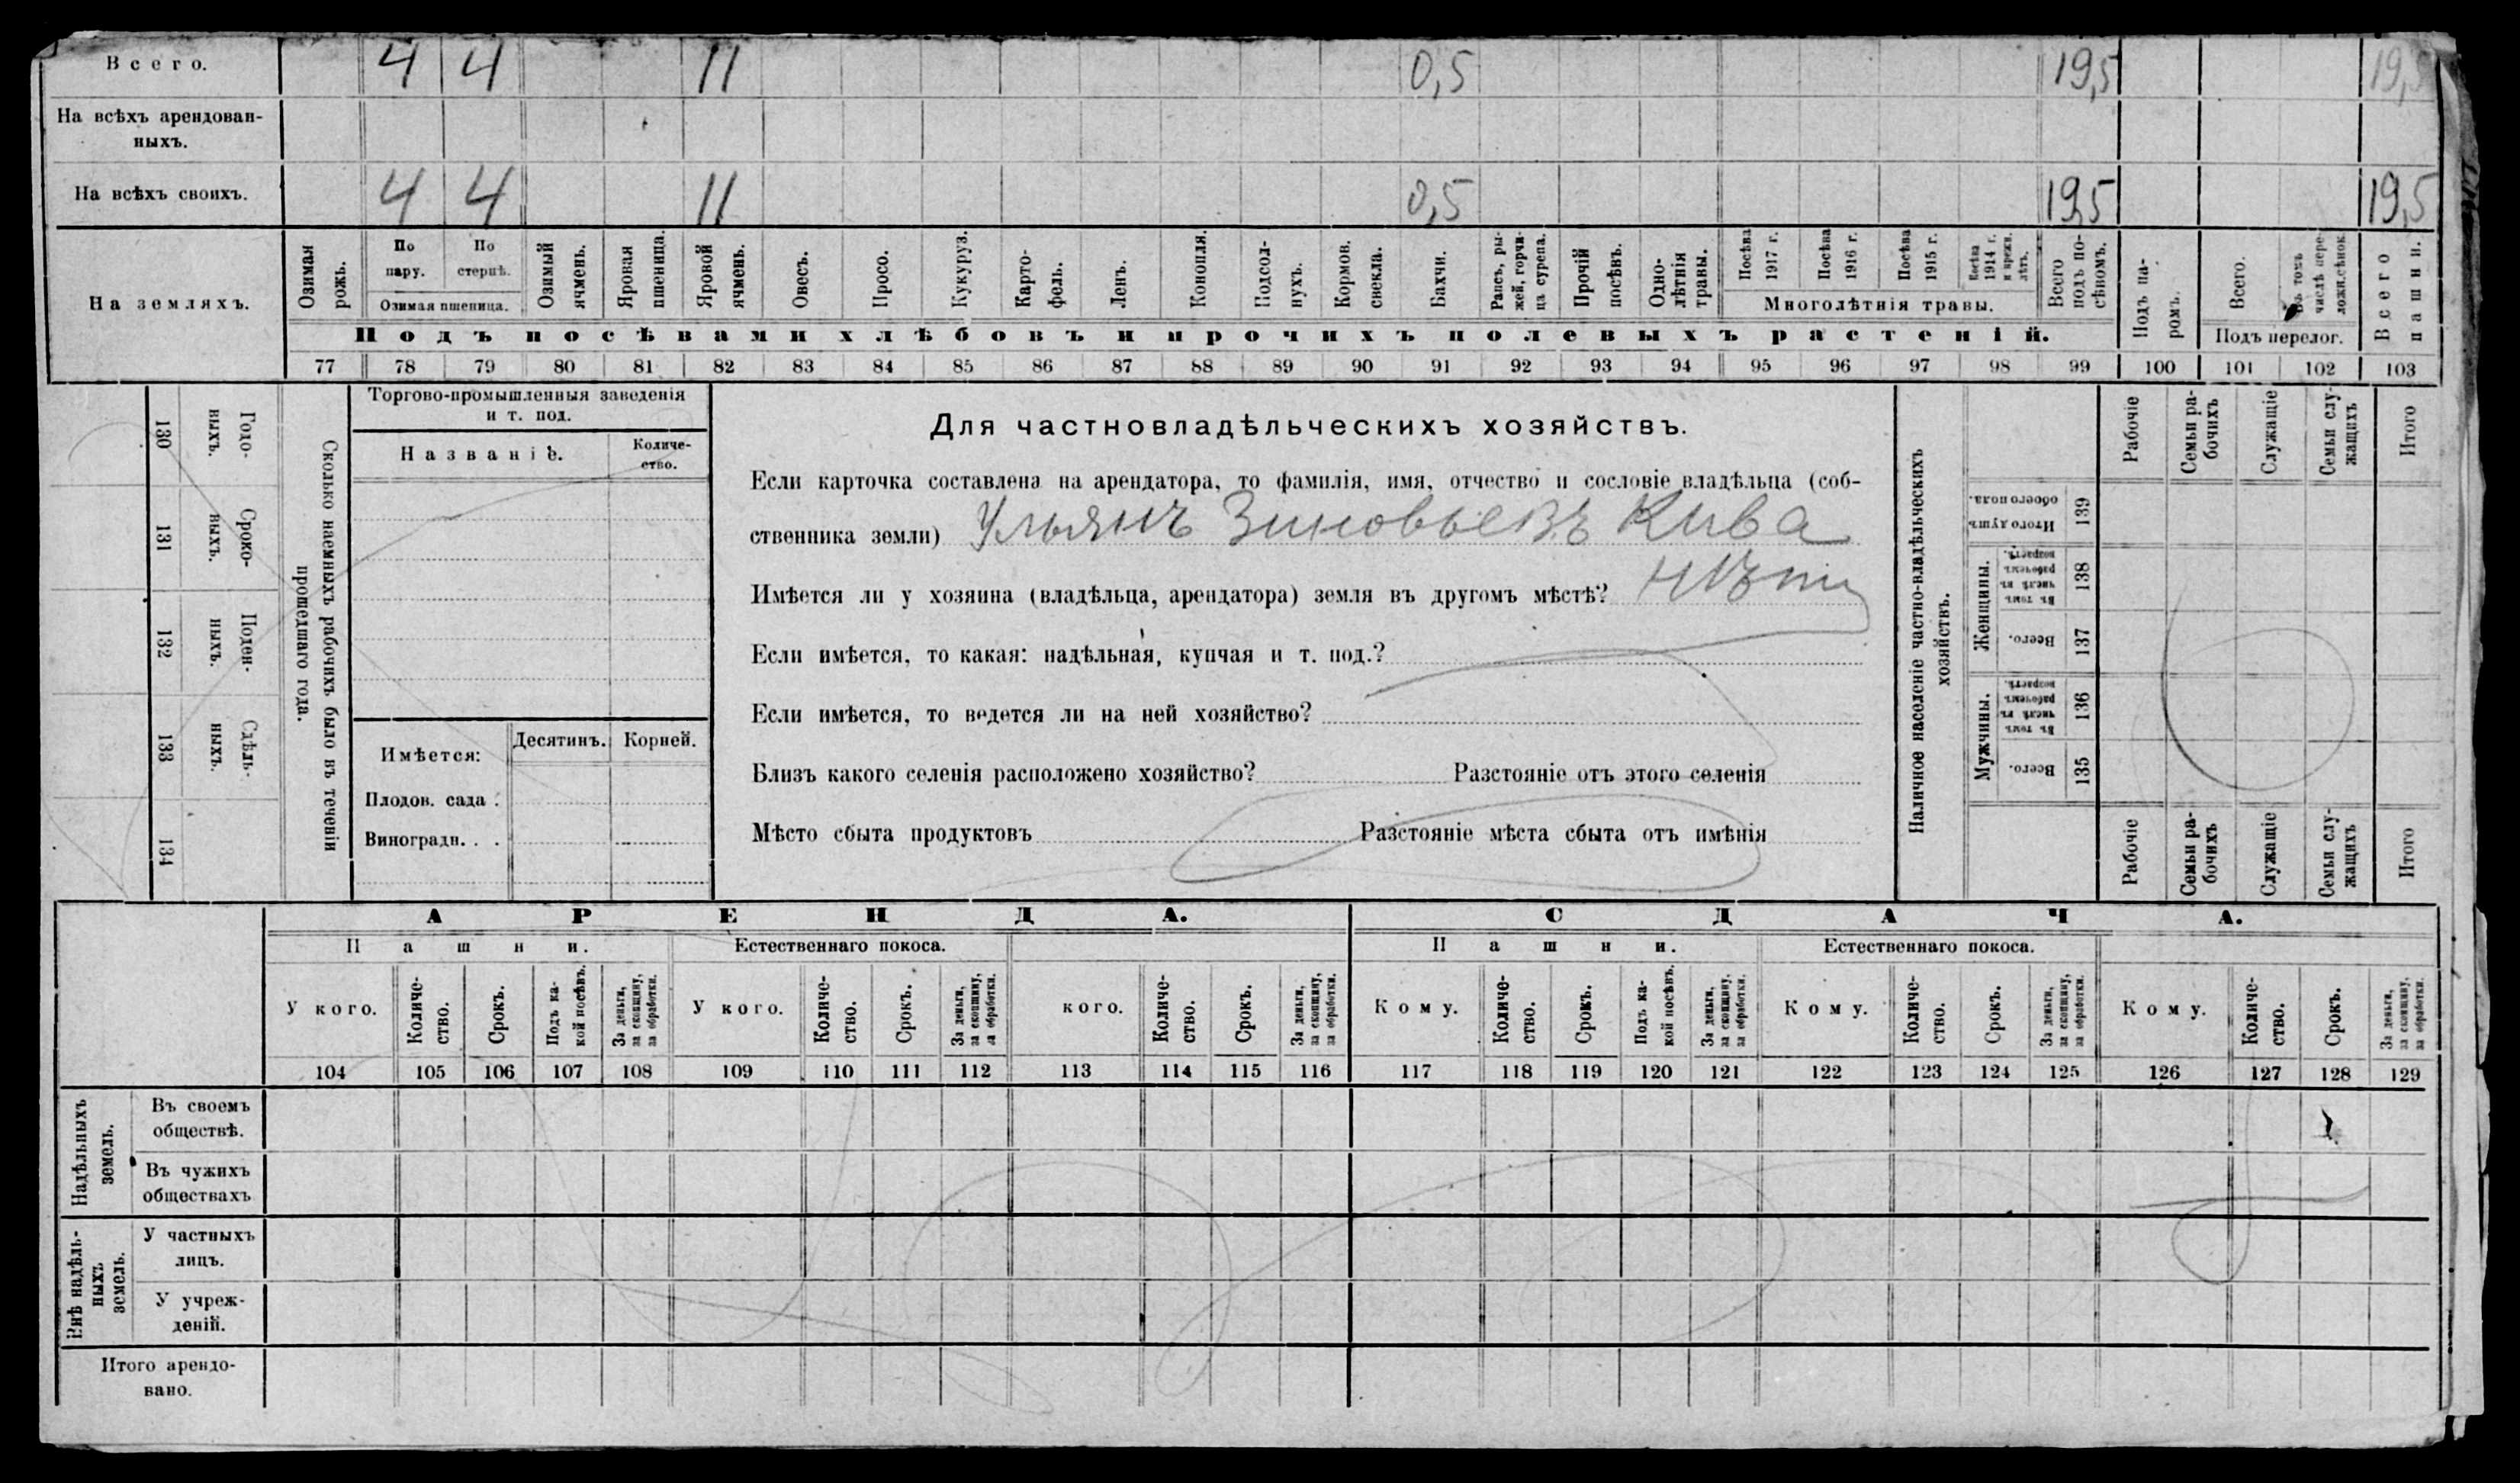 Всего. 4 4 11 0,5 19,5 19,5
На всѣхъ арендован-
ныхъ.
На всѣхъ своихъ. 4 4 11 0,5 19,5 19,5
На земляхъ.
Озимая рожь.
По пару.
По стернѣ.
Озимая пшеница.
Озимый ячмень.
Яровая пшеница.
Яровой ячмень.
Овесъ.
Просо.
Кукуруз.
Карто-
фель.
Ленъ.
Конопля.
Подсол-
нухъ.
Кормов. свекла.
Бахчи.
Рапсъ, ры-
жей, горчи-
ца сурепа.
Прочій посѣвъ.
Одно-
лѣтнія травы.
Посѣва 1917 г.
Посѣва 1916 г.
Посѣва 1915 г.
Посѣва 1914 г. и прежн. лѣтъ.
Многолѣтнія травы.
Всего подъ по-
сѣвомъ.
Подъ посѣвами хлѣбовъ и прочихъ полевыхъ растеній.
Подъ па-
ромъ.
Всего.
Въ томъ числѣ пере-
ложн. сѣнок.
Подъ перелог.
Всего пашни.
77 78 79 80 81 82 83 84 85 86 87 88 89 90 91 92 93 94 95 96 97 98 99 100 101 102 103
130 131 132 133 134
Годо-
выхъ.
Сроко-
выхъ.
Поден-
ныхъ.
Сдѣль-
ныхъ.
Сколько наемныхъ рабочихъ было въ теченіи
прошедшаго года.
Торгово-промышленныя заведенія
и т. под.
Названіе.
Количе-
ство.
Имѣется: Десятинъ. Корней.
Плодов. сада .
Виноградн. . .
Для частновладѣльческихъ хозяйствъ.
Если карточка составлена на арендатора, то фамилія, имя, отчество и сословіе владѣльца (соб-
ственника земли) Ульянъ Зиновьевъ Кива
Имѣется ли у хозяина (владѣльца, арендатора) земля въ другомъ мѣстѣ? нѣтъ
Если имѣется, то какая: надѣльная, купчая и т. под.?
Если имѣется, то ведется ли на ней хозяйство?
Близъ какого селенія расположено хозяйство? Разстояніе отъ этого селенія
Мѣсто сбыта продуктовъ Разстояніе мѣста сбыта отъ имѣнія
Наличное населеніе частно-владѣльческихъ
хозяйствъ.
Мужчины.
Женщины.
Всего.
Въ томъ числѣ въ рабочемъ возрастѣ.
Всего.
Въ томъ числѣ въ рабочемъ возрастѣ.
Итого душъ обоего пола.
135 136 137 138 139
Рабочіе
Семьи ра-
бочихъ
Служащіе
Семьи слу-
жащихъ
Итого
Рабочіе
Семьи ра-
бочихъ
Служащіе
Семьи слу-
жащихъ
Итого
АРЕНДА. СДАЧА.
Пашни. Естественнаго покоса. Пашни. Естественнаго покоса.
У кого.
Количе-
ство.
Срокъ.
Подъ ка-
кой посѣвъ.
За деньги, за скопщину, за обработки.
У кого.
Количе-
ство.
Срокъ.
За деньги, за скопщину, за обработки.
кого.
Количе-
ство.
Срокъ.
За деньги, за скопщину, за обработки.
Кому.
Количе-
ство.
Срокъ.
Подъ ка-
кой посѣвъ.
За деньги, за скопщину, за обработки.
Кому.
Количе-
ство.
Срокъ.
За деньги, за скопщину, за обработки.
Кому.
Количе-
ство.
Срокъ.
За деньги, за скопщину, за обработки.
104 105 106 107 108 109 110 111 112 113 114 115 116 117 118 119 120 121 122 123 124 125 126 127 128 129
Надѣльныхъ
земель.
Въ своемъ
обществѣ.
Въ чужихъ
обществахъ
Внѣ надѣль-
ныхъ
земель.
У частныхъ
лицъ.
У учреж-
деній.
Итого арендо-
вано.